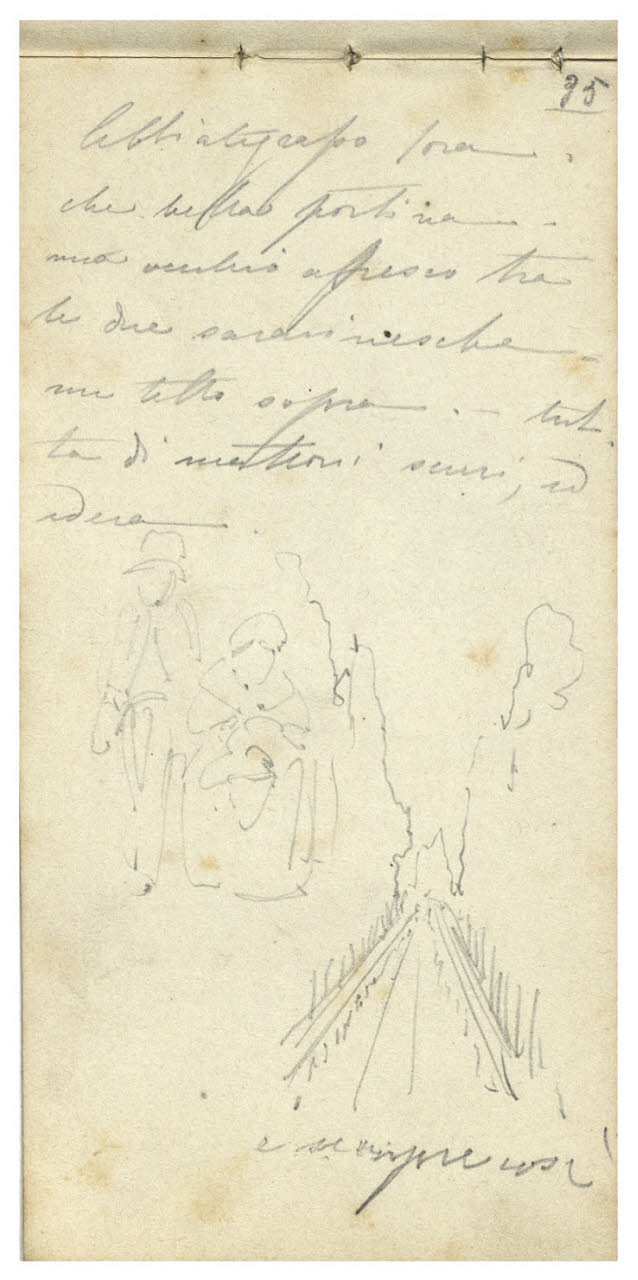 95
Abbiategrasso
che bella portina -
un vecchio afresco tra
le due saracinesche -
un tetto sopra. - tut
ta di mattoni scuri, ed
edera.
e sempre così